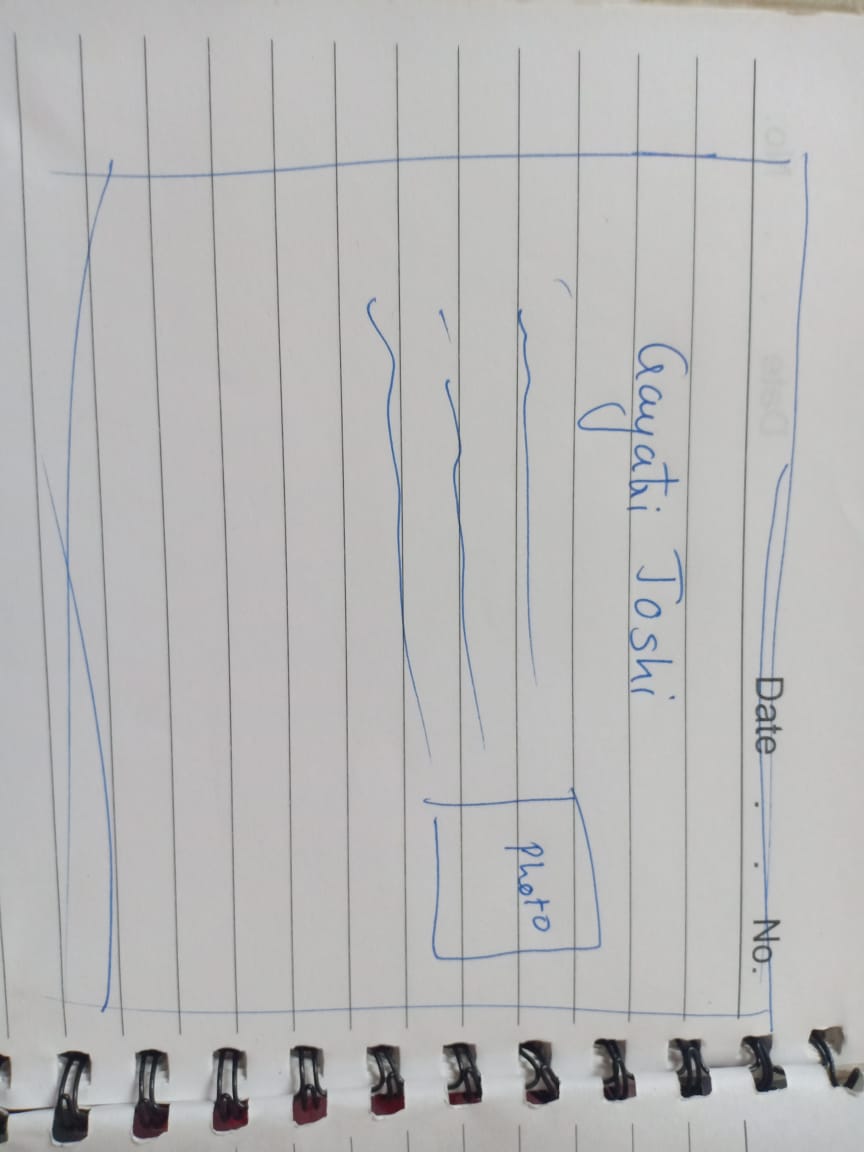 Date . . No.
Gayatri Joshi
Photo